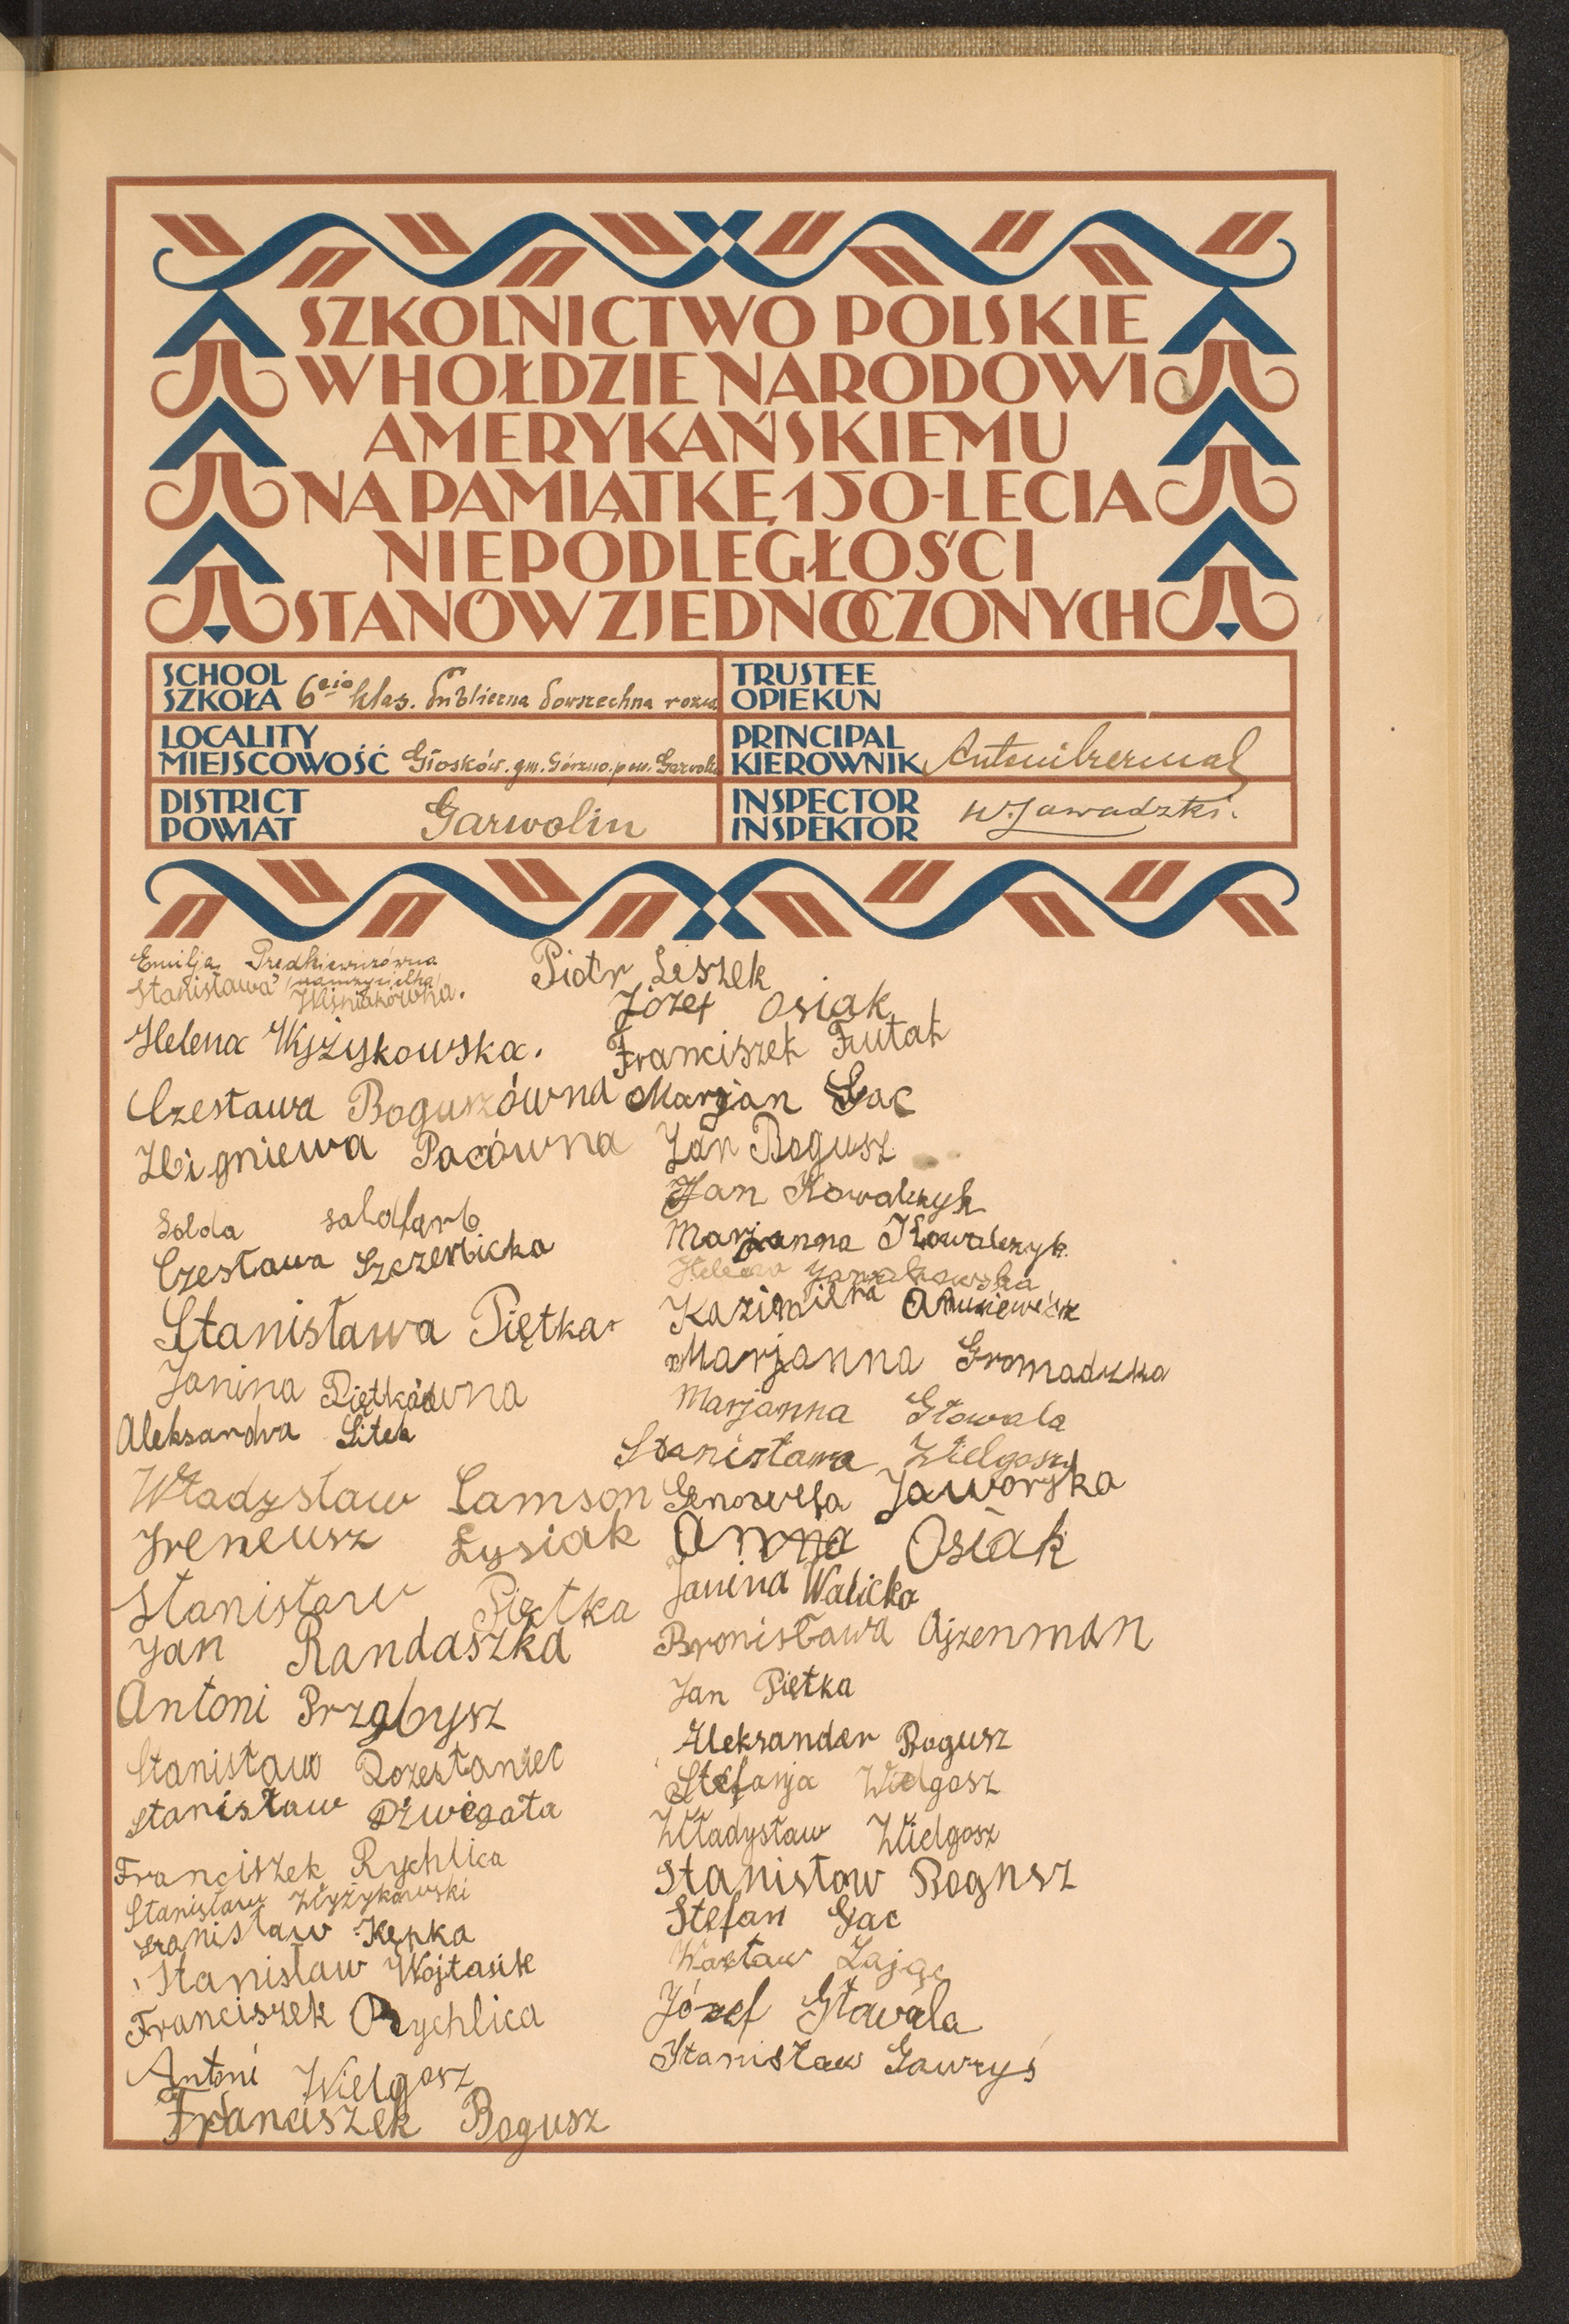 SZKOLNICTWO POLSKIE
W HOŁDZIE NARODOWI
AMERYKAŃSKIEMU
NA PAMIĄTKĘ 150-LECIA
NIEPODLEGŁOŚCI
STANÓW ZJEDNOCZONYCH
SCHOOL
SZKOŁA 6cio klas. Publiczna Powszechna
TRUSTEE
OPIEKUN
LOCALITY
MIEJSCOWOŚĆ Głosków. gm. Górzno. pow. Garwolin
PRINCIPAL
KIEROWNIK Antoni
DISTRICT
POWIAT Garwolin
INSPECTOR
INSPEKTOR W. Zawadzki.
Emilja
nauczycielka
Stanisława Wiśniakówna.
Helena Wyżykowska.
Czesława Boguszówna
Zbigniewa Pacówna
Solda saldfarb
Czesława Szczerbicka
Stanisława Piętka
Janina Piętkówna
Aleksandra Sitek
Władysław Samson
Ireneusz Łysiak
Stanisław Piętka
Jan Randaszka
Antoni Przybysz
Stanisław Rozestaniec
Stanisław Dźwigata
Franciszek Rychlica
Stanisław Wyżykowski
Stanisław Kępka
Stanisław Wojtasik
Franciszek Rychlica
Antoni Wielgosz
Franciszek Bogusz
Piotr Leszek
Józef Osiak
Franciszek Frutak
Marjan Gac
Jan Bogusz
Jan Kowalczyk
Marjanna Kowalczyk
Helena
Kazimiera
Marjanna Gromadzka
Marjanna Głowala
Stanisława Wielgosz
Genowefa Jaworska
Anna Osiak
Janina Walicka
Bronisława Ajzenman
Jan Piętka
Aleksander Bogusz
Stefanja Wielgosz
Władysław Wielgosz
Stanisław Bogusz
Stefan Gac
Wacław Zając
Józef Głowala
Stanisław Gawryś